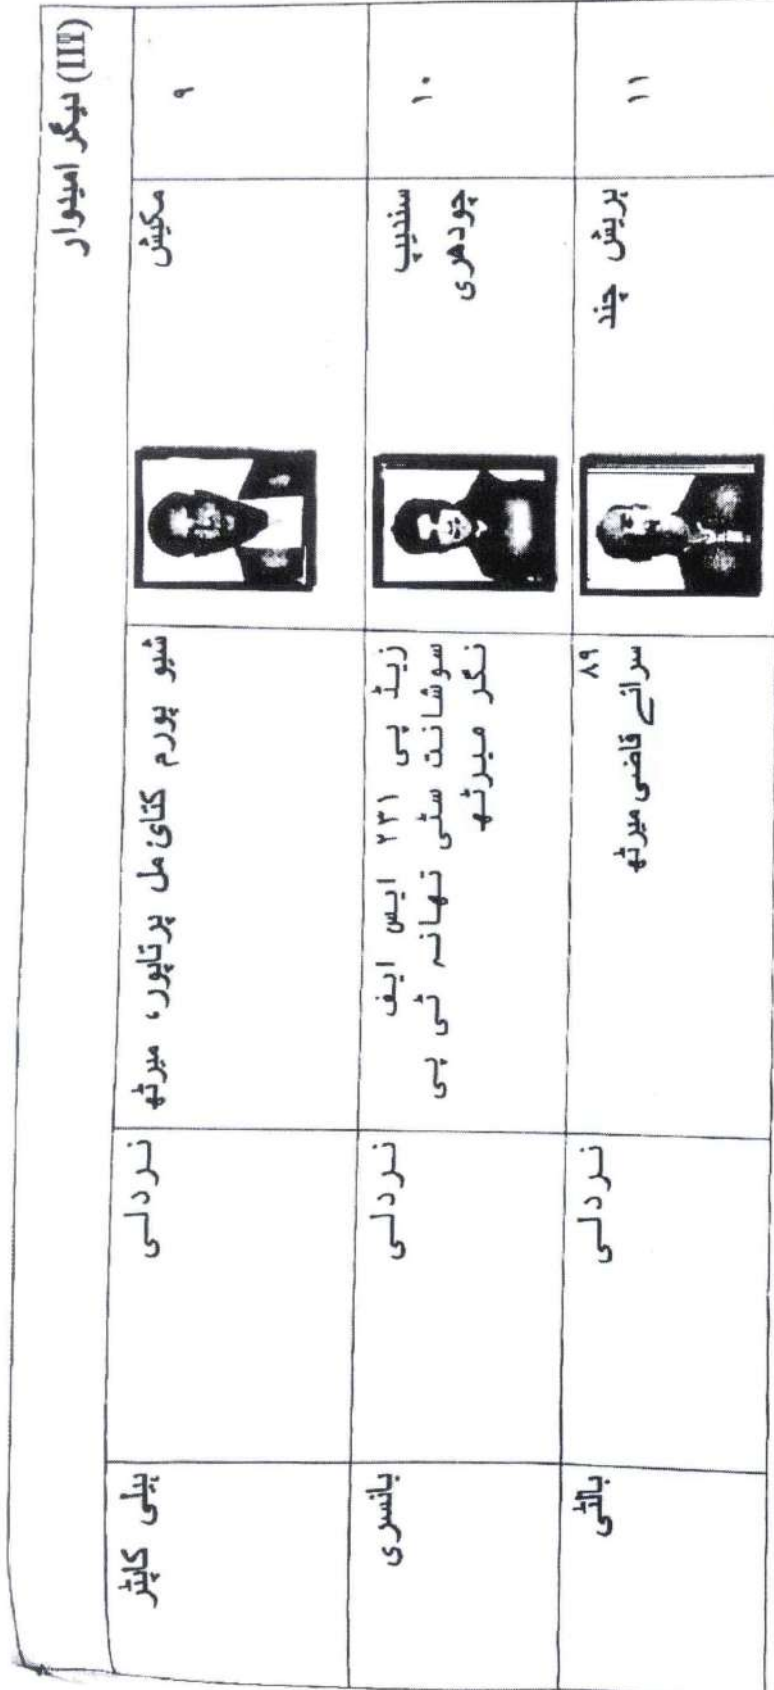 (III) دیگر امیدوار
۹
مکیش
شیو پورم کتائ مل پرتاپور، میرٹھ
نردلی
ہیلی کاپٹر
۱۰
سندیپ
چودھری
زیڈ پی ۲۳۱ ایس ایف
سوشانت سٹی تھانہ ٹی پی
نگر میرٹھ
نردلی
بانسری
۱۱
ہریش چند
۸۹
سرائے قاضی میرٹھ
نردلی
بالٹی